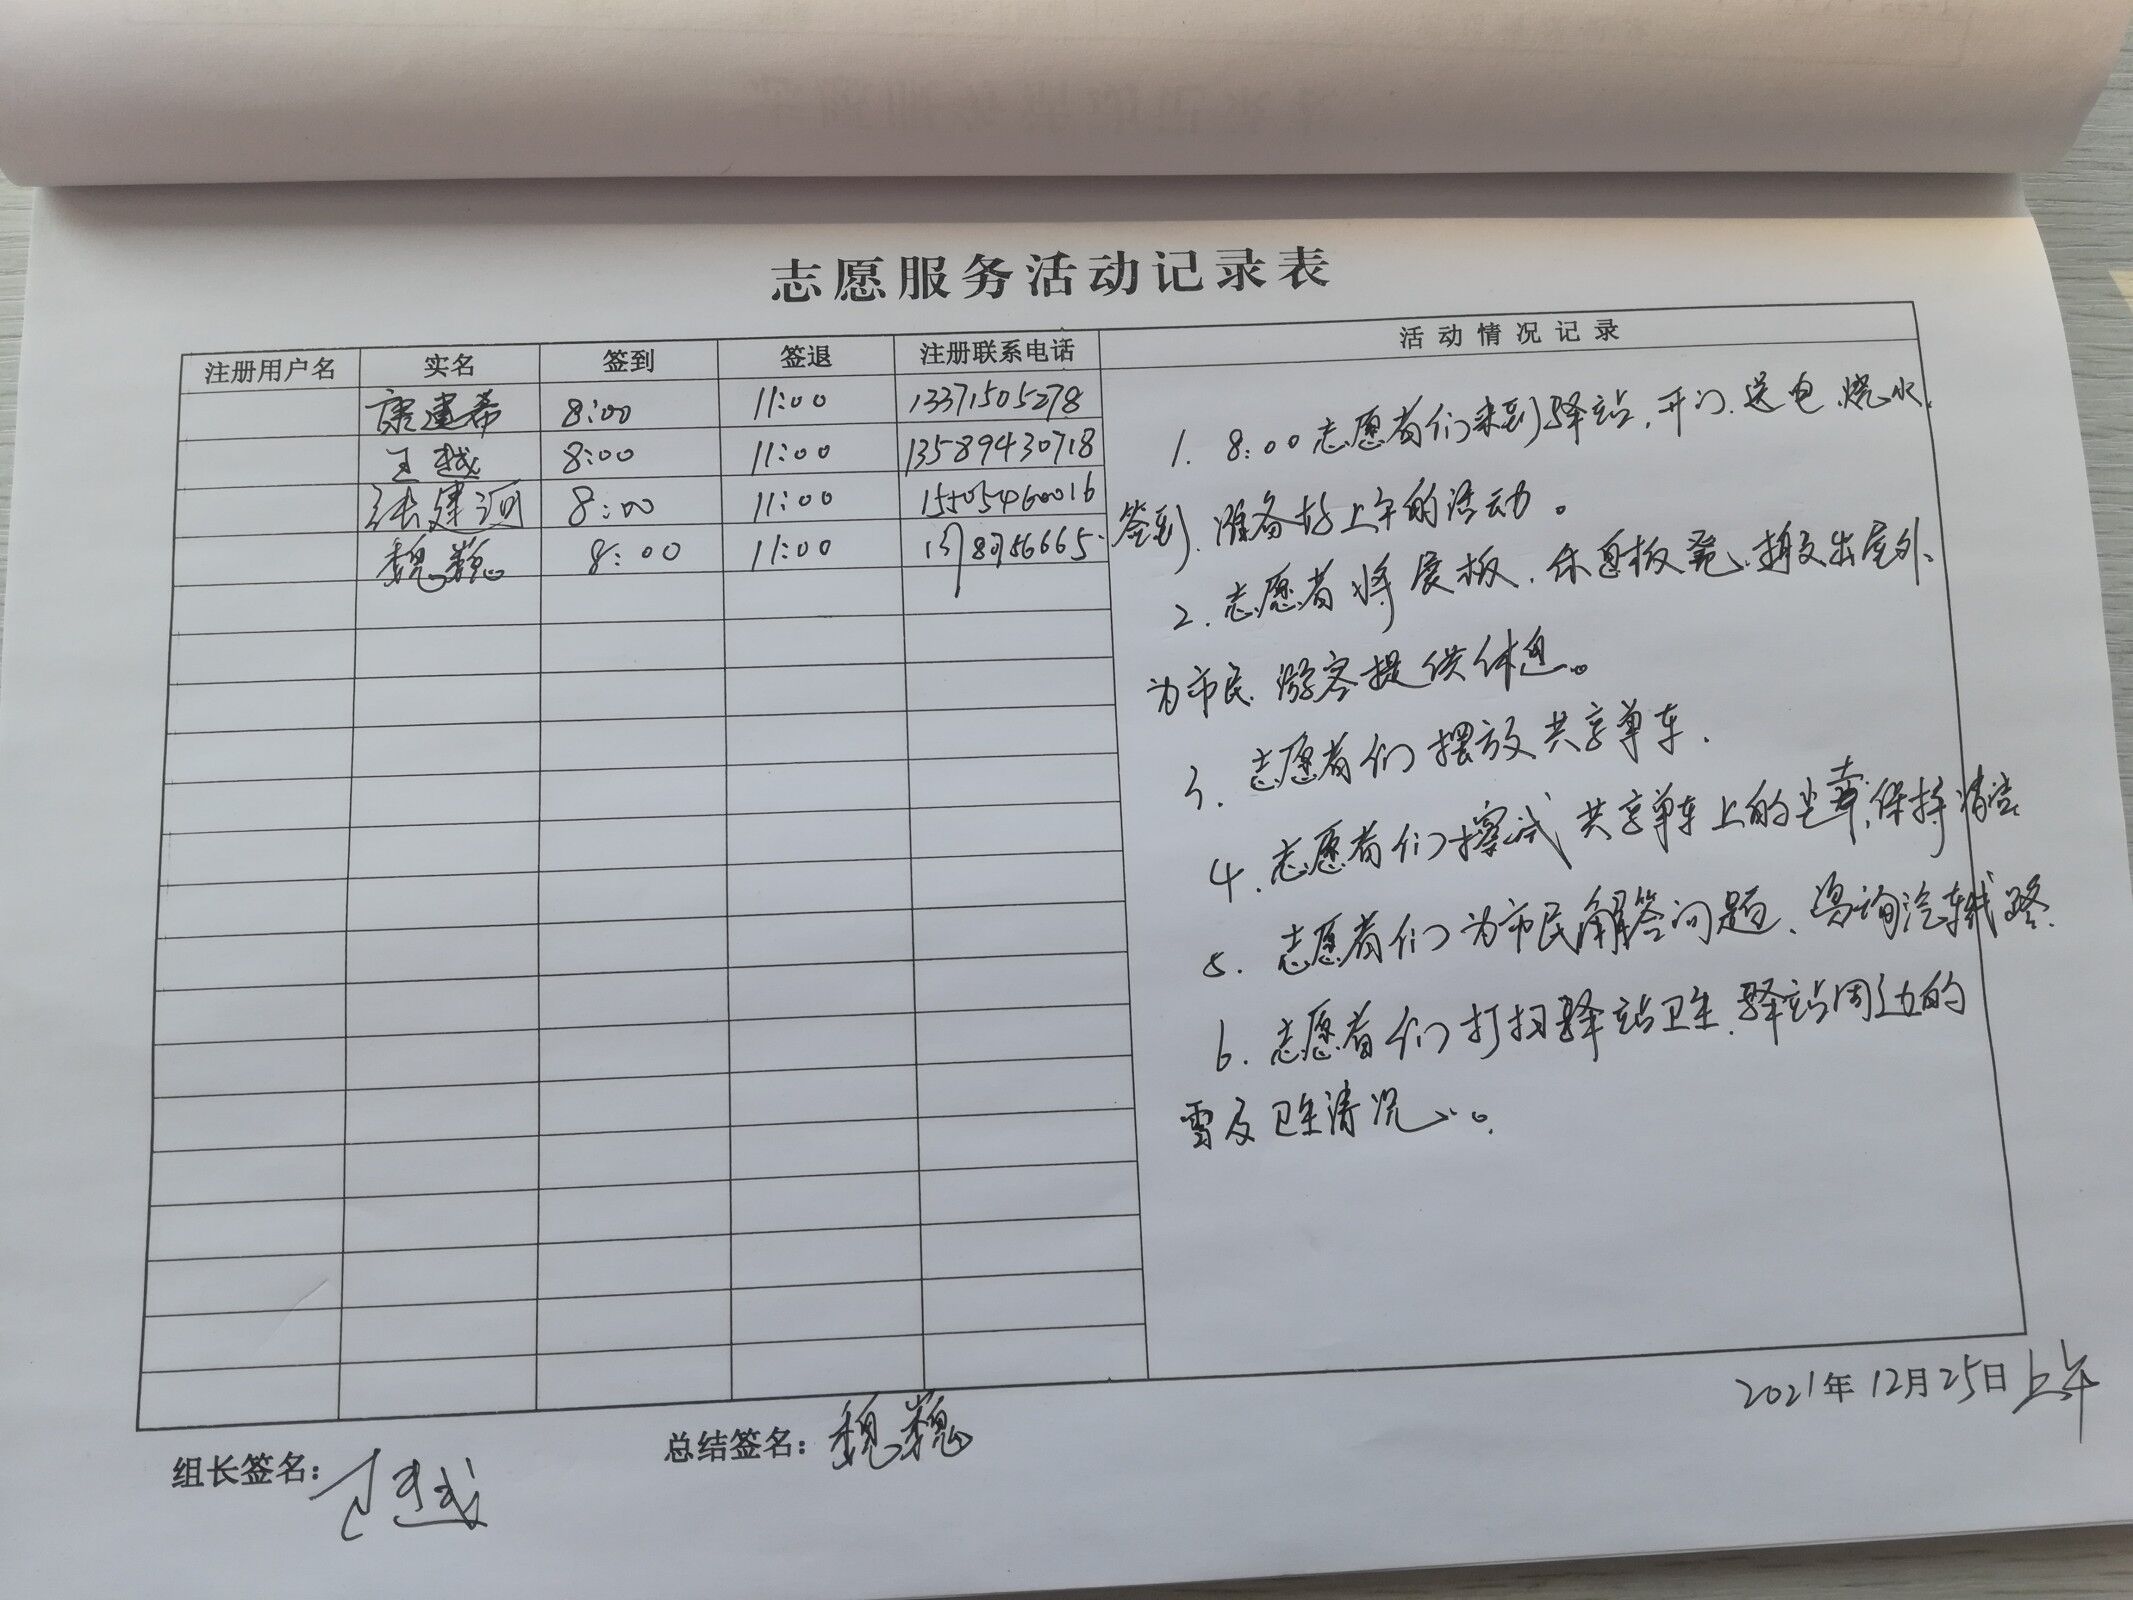 志愿服务活动记录表
注册用户名 实名 签到 签退 注册联系电话 活动情况记录
康建希 8:00 11:00 13371505278
王越 8:00 11:00 13589430718
张建河 8:00 11:00 15505460016
魏巍 8:00 11:00
1. 8:00志愿者们来到驿站,开门、送电、烧水、
签到、准备好上午的活动。
2.志愿者将展板、休息板凳、搬出室外、
为市民、游客提供休息。
3.志愿者们摆放共享单车.
4.志愿者们擦拭共享单车上的尘,保持清洁
5.志愿者们为市民解答问题、咨询汽车线路.
6.志愿者们打扫驿站卫生、驿站周边的
雪及卫生清况...。
2021年12月25日上午
组长签名: 王越
总结签名: 魏巍